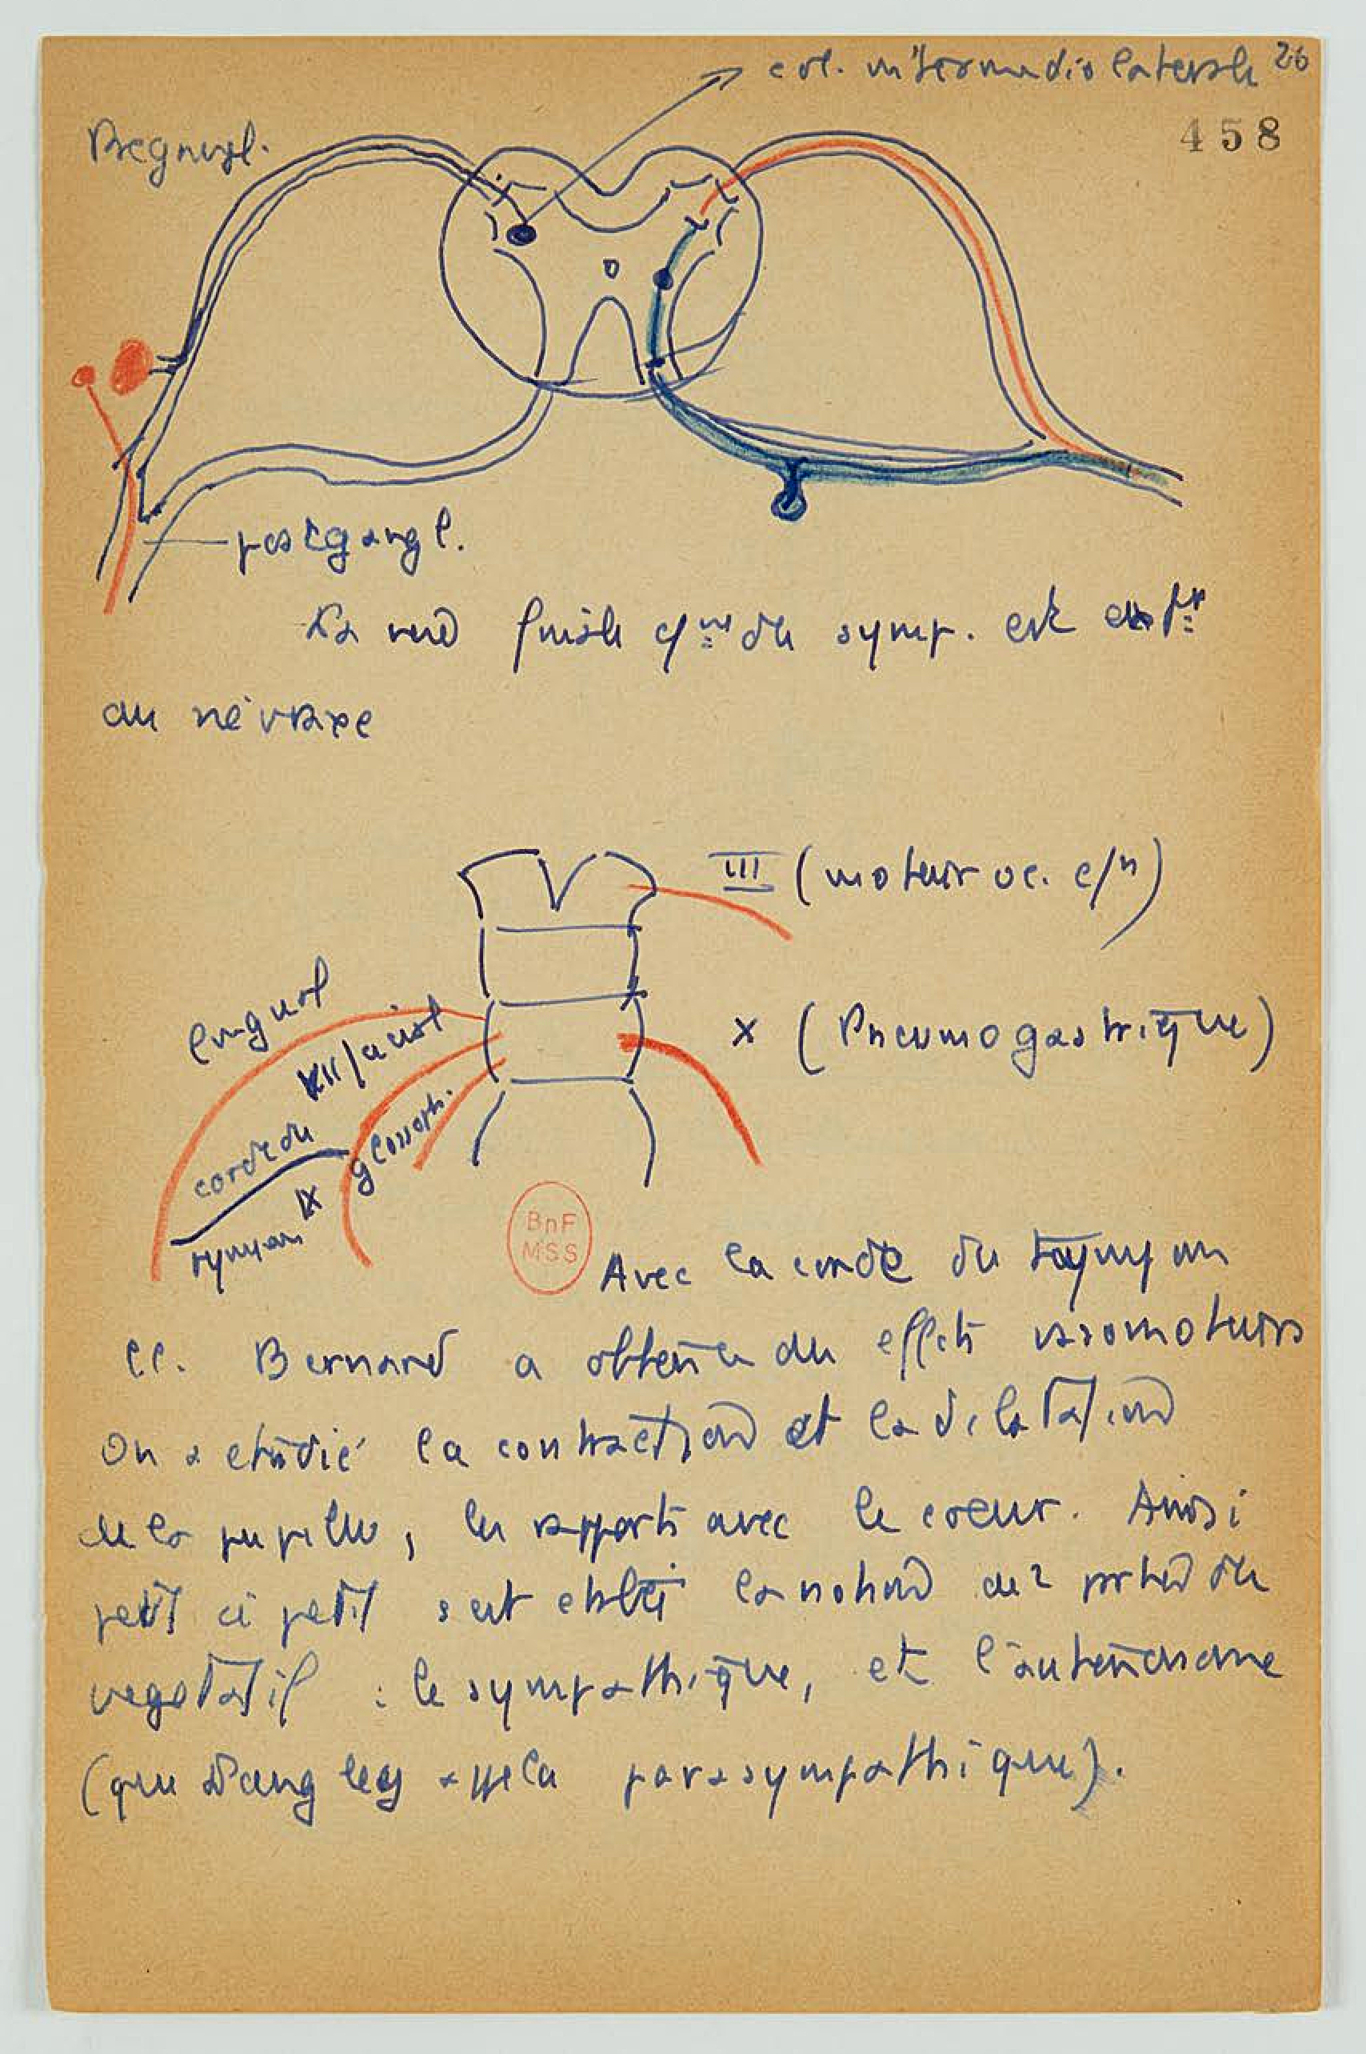 col. intermedio laterale 26
458
Pregangl.
postgangl.
La voie finale du symp. est
au névraxe
III (moteur oc. c/n)
lingual
VII facial
X (Pneumogastrique)
glossoph.
corde du
IX
tympan
BnF
MSS
Avec la corde du tympan
Cl. Bernard a obtenu des effets vasomoteurs
On a étudié la contraction et la dilatation
de la pupille, les rapports avec le coeur. Ainsi
petit à petit s'est établi la notion de 2 parties du
vegetatif : le sympathique, et l'autonome
(que Langley appela parasympathique).